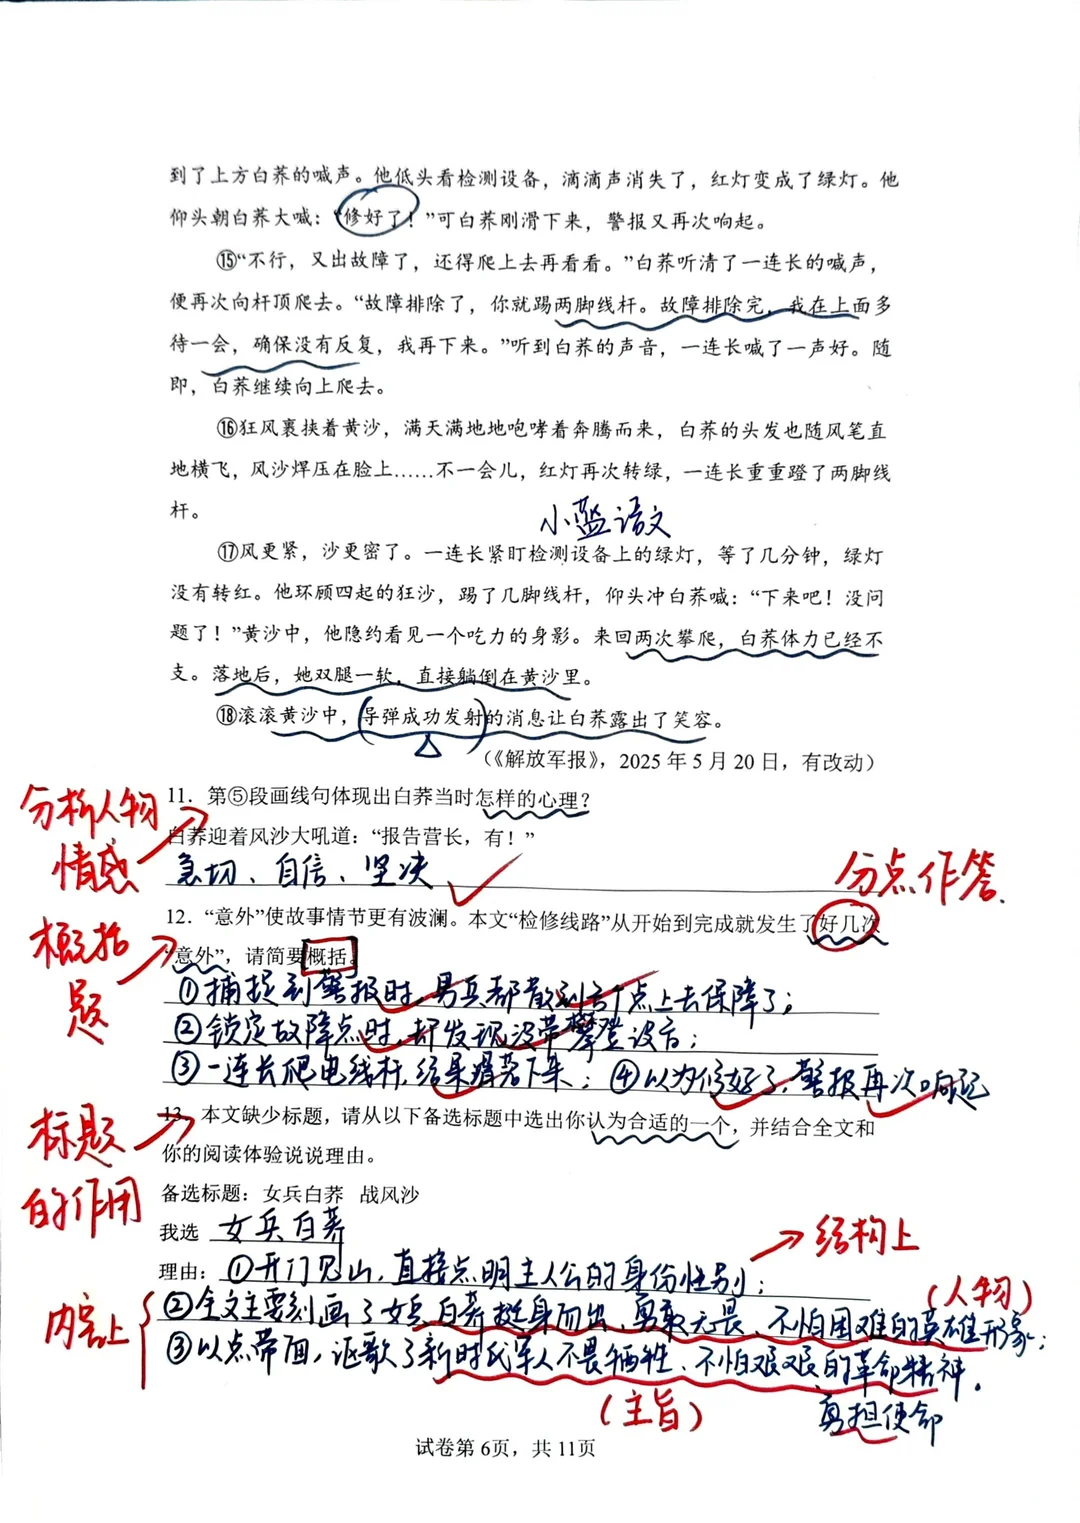 到了上方白荞的喊声。他低头看检测设备，滴滴声消失了，红灯变成了绿灯。他
仰头朝白荞大喊：“修好了！”可白荞刚滑下来，警报又再次响起。
⑮“不行，又出故障了，还得爬上去再看看。”白荞听清了一连长的喊声，
便再次向杆顶爬去。“故障排除了，你就踢两脚线杆。故障排除完，我在上面多
待一会，确保没有反复，我再下来。”听到白荞的声音，一连长喊了一声好。随
即，白荞继续向上爬去。
⑯狂风裹挟着黄沙，满天满地地咆哮着奔腾而来，白荞的头发也随风笔直
地横飞，风沙焊压在脸上……不一会儿，红灯再次转绿，一连长重重蹬了两脚线
杆。
小蓝语文
⑰风更紧，沙更密了。一连长紧盯检测设备上的绿灯，等了几分钟，绿灯
没有转红。他环顾四起的狂沙，踢了几脚线杆，仰头冲白荞喊：“下来吧！没问
题了！”黄沙中，他隐约看见一个吃力的身影。来回两次攀爬，白荞体力已经不
支。落地后，她双腿一软，直接躺倒在黄沙里。
⑱滚滚黄沙中，导弹成功发射的消息让白荞露出了笑容。
（《解放军报》，2025年5月20日，有改动）
分析人物
情感
11．第⑤段画线句体现出白荞当时怎样的心理？
白荞迎着风沙大吼道：“报告营长，有！”
急切、自信、坚决
分点作答
概括
题
12．“意外”使故事情节更有波澜。本文“检修线路”从开始到完成就发生了好几次
“意外”，请简要概括。
①捕捉到警报时，男兵都散到各个点上去保障了；
②锁定故障点时，却发现没带攀登设备；
③一连长爬电线杆，结果滑落下来；④以为修好了，警报再次响起
标题
的作用
13．本文缺少标题，请从以下备选标题中选出你认为合适的一个，并结合全文和
你的阅读体验说说理由。
备选标题：女兵白荞 战风沙
我选 女兵白荞
结构上
理由：①开门见山，直接点明主人公的身份性别；
内容上
（人物）
②全文主要刻画了女兵白荞挺身而出、勇敢无畏、不怕困难的英雄形象；
③以点带面，讴歌了新时代军人不畏牺牲、不怕艰难的革命精神。
（主旨）
勇担使命
试卷第6页，共11页